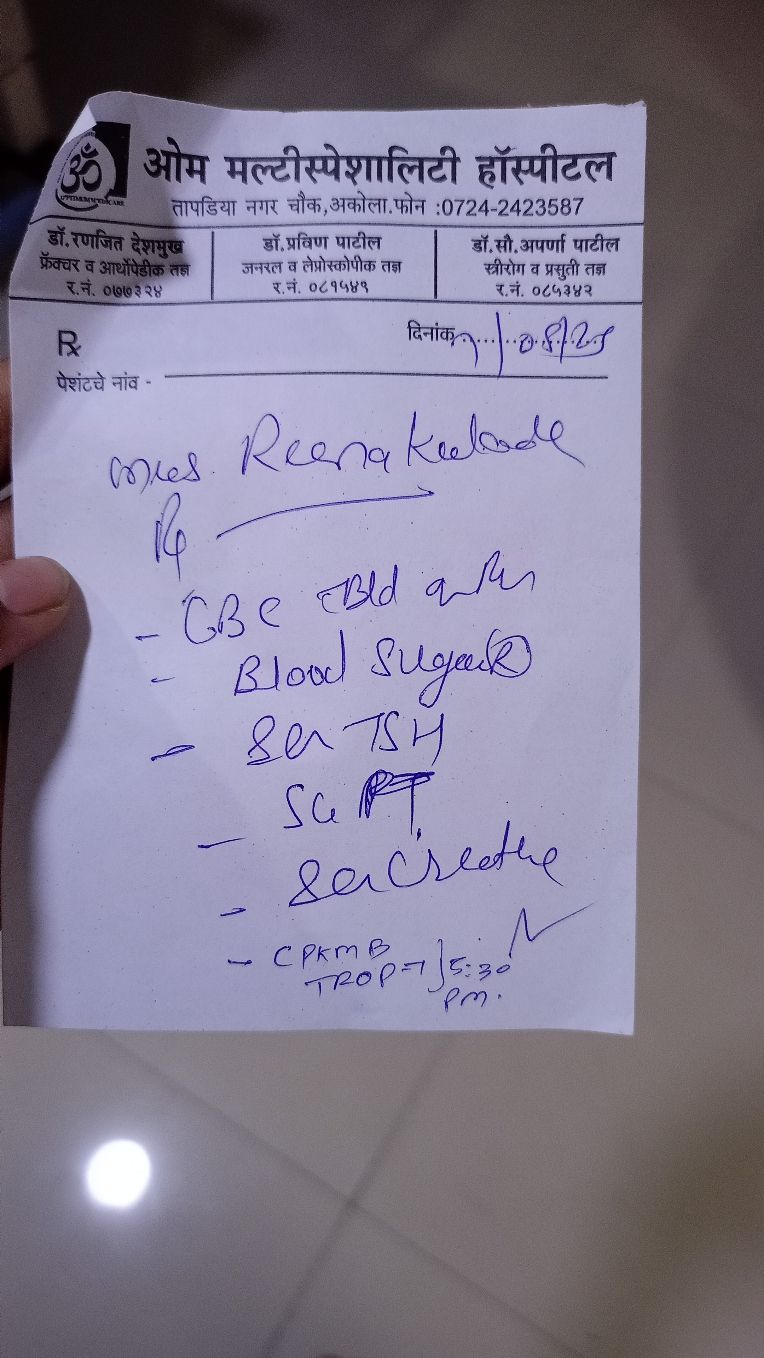 ॐ
ओम मल्टीस्पेशालिटी हॉस्पीटल
तापडिया नगर चौक,अकोला.फोन :0724-2423587
डॉ.रणजित देशमुख
फ्रॅक्चर व आर्थोपेडीक तज्ञ
र.नं. ०७७३२४
डॉ.प्रविण पाटील
जनरल व लेप्रोस्कोपीक तज्ञ
र.नं. ०८१५४९
डॉ.सौ.अपर्णा पाटील
स्त्रीरोग व प्रसुती तज्ञ
र.नं. ०८५३४२
Rx
दिनांक /08/25
पेशंटचे नांव -
Reena
Rx
- CBC Bld
- Blood Sugar R
- Ser TSH
- SGPT
- Ser Creatine
- CPKMB
TROP-T } 5:30
pm.